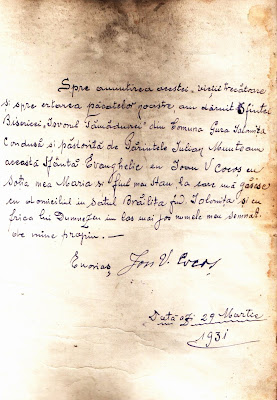 Spre amintirea acestei vieți trecătoare
și spre ertarea păcatelor noastre am dăruit Sfintei
Biserici, Isvorul Tămăduirei" din Comuna Gura Ialomița
Condusă și păstorită de Părintele Iulian Munteam
această Sfântă Evanghelie eu Ioan V Cocoș cu
soția mea Maria și fiul mai Stan la care mă găsesc
cu domiciliul în satul Brăilița jud. Ialomița și cu
frica lui Dumnezeu în las mai jos numele meu semnat
de mine propriu. —
Enoriaș, Ion V. Cocoș
Data azi 29 Martie
1931